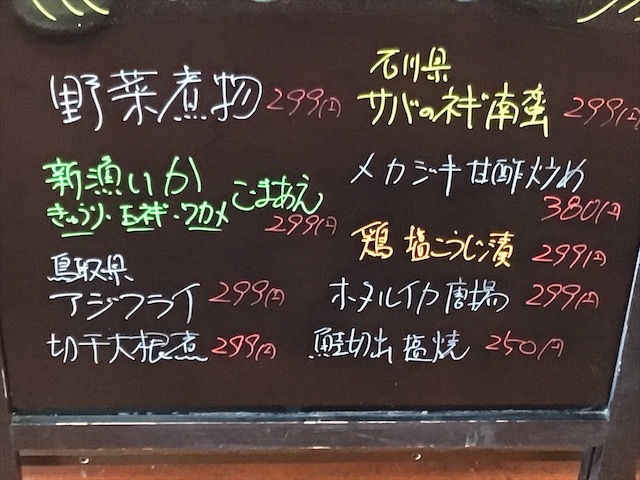 野菜煮物 299円
新漁いか
きゅうり・玉ネギ・ワカメ ごまあえ
299円
鳥取県
アジフライ 299円
切干大根煮 299円
石川県
サバのネギ南蛮 299円
メカジキ甘酢炒め
380円
鶏塩こうじ漬 299円
ホタルイカ唐揚 299円
鮭切出塩焼 250円